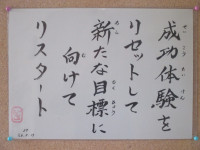 成功体験を
リセットして
新たな目標に
向けて
リスタート